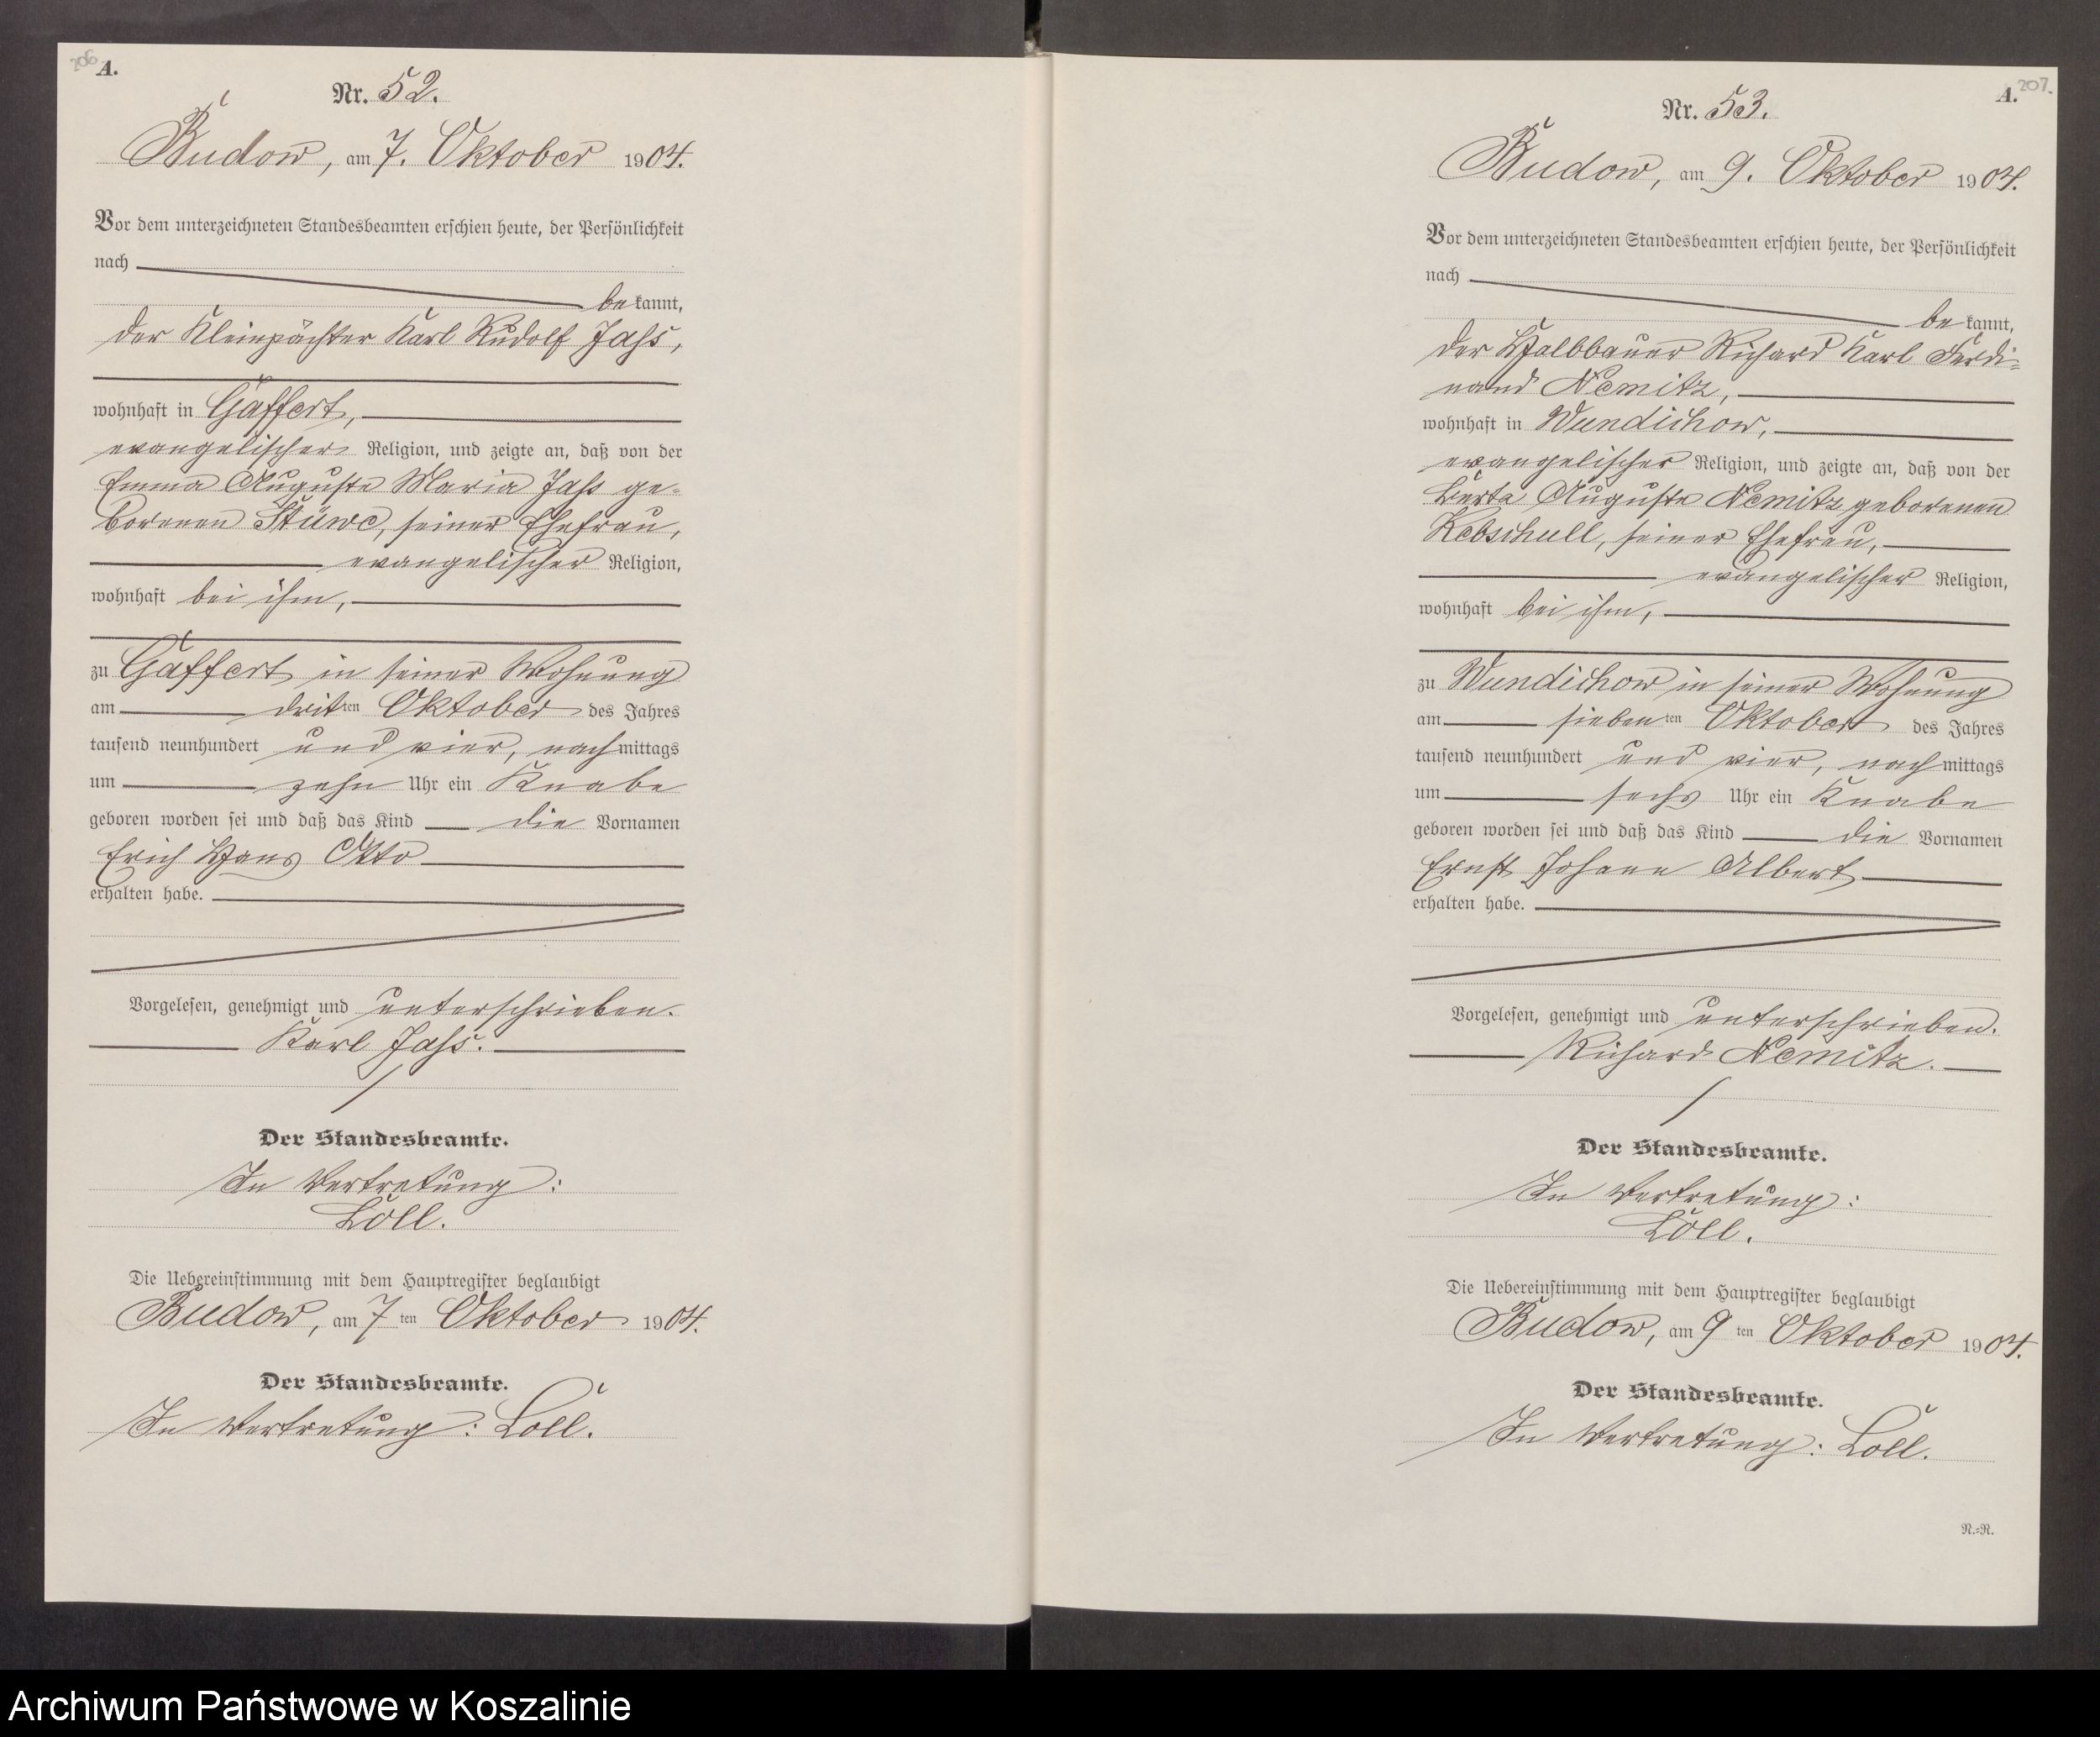 206
A.
Nr. 52.
Budow, am 7. Oktober 1904.
Vor dem unterzeichneten Standesbeamten erschien heute, der Persönlichkeit
nach
be kannt,
der Kleinpächter Karl Rudolf Jass,
wohnhaft in Gaffert,
evangelischer Religion, und zeigte an, daß von der
Emma Auguste Maria Jass ge-
borenen Stüwe, seiner Ehefrau,
evangelischer Religion,
wohnhaft bei ihm,
zu Gaffert in seiner Wohnung
am dritten Oktober des Jahres
tausend neunhundert und vier, nachmittags
um zehn Uhr ein Knabe
geboren worden sei und daß das Kind die Vornamen
Erich Hans Otto
erhalten habe.
Vorgelesen, genehmigt und unterschrieben.
Karl Jass.
Der Standesbeamte.
In Vertretung:
Loll.
Die Uebereinstimmung mit dem Hauptregister beglaubigt
Budow, am 7 ten Oktober 1904.
Der Standesbeamte.
In Vertretung: Loll.
A.
207.
Nr. 53.
Budow, am 9. Oktober 1904.
Vor dem unterzeichneten Standesbeamten erschien heute, der Persönlichkeit
nach
be kannt,
der Halbbauer Richard Karl Ferdi-
nand Nemitz,
wohnhaft in Wundichow,
evangelischer Religion, und zeigte an, daß von der
Berta Auguste Nemitz geborenen
Kebschull, seiner Ehefrau,
evangelischer Religion,
wohnhaft bei ihm,
zu Wundichow in seiner Wohnung
am siebenten Oktober des Jahres
tausend neunhundert und vier, nachmittags
um sechs Uhr ein Knabe
geboren worden sei und daß das Kind die Vornamen
Ernst Johann Albert
erhalten habe.
Vorgelesen, genehmigt und unterschrieben.
Richard Nemitz.
Der Standesbeamte.
In Vertretung:
Loll.
Die Uebereinstimmung mit dem Hauptregister beglaubigt
Budow, am 9 ten Oktober 1904.
Der Standesbeamte.
In Vertretung: Loll.
N.=N.
Archiwum Państwowe w Koszalinie